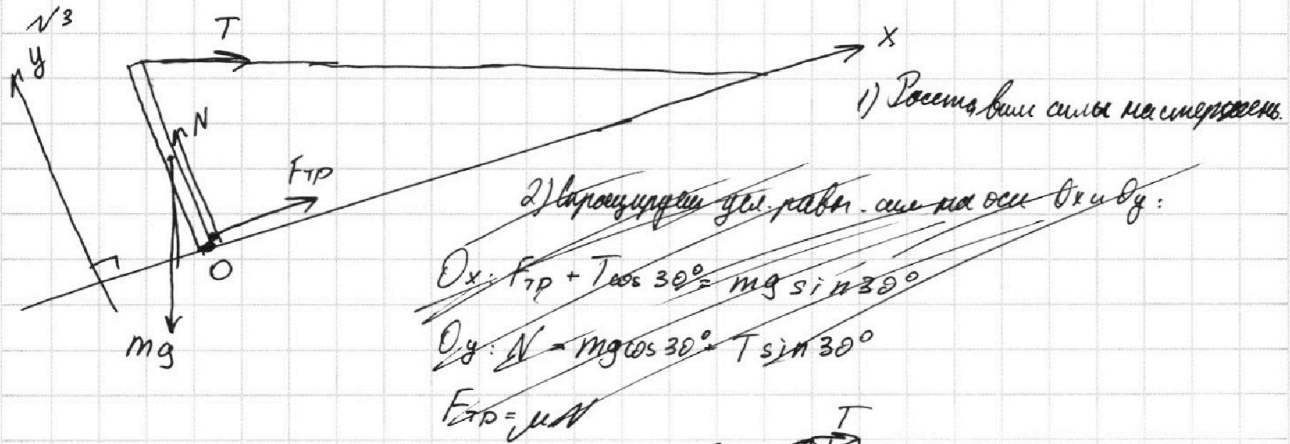 №3
y
T
x
1) Расставим силы на стержень.
N
Fтр
2) Спроецируем усл. равн. сил на оси Ox и Oy:
O
Ox: Fтр + Tcos 30° = mg sin 30°
mg
Oy: N = mg cos 30° - T sin 30°
Fтр = μN
T